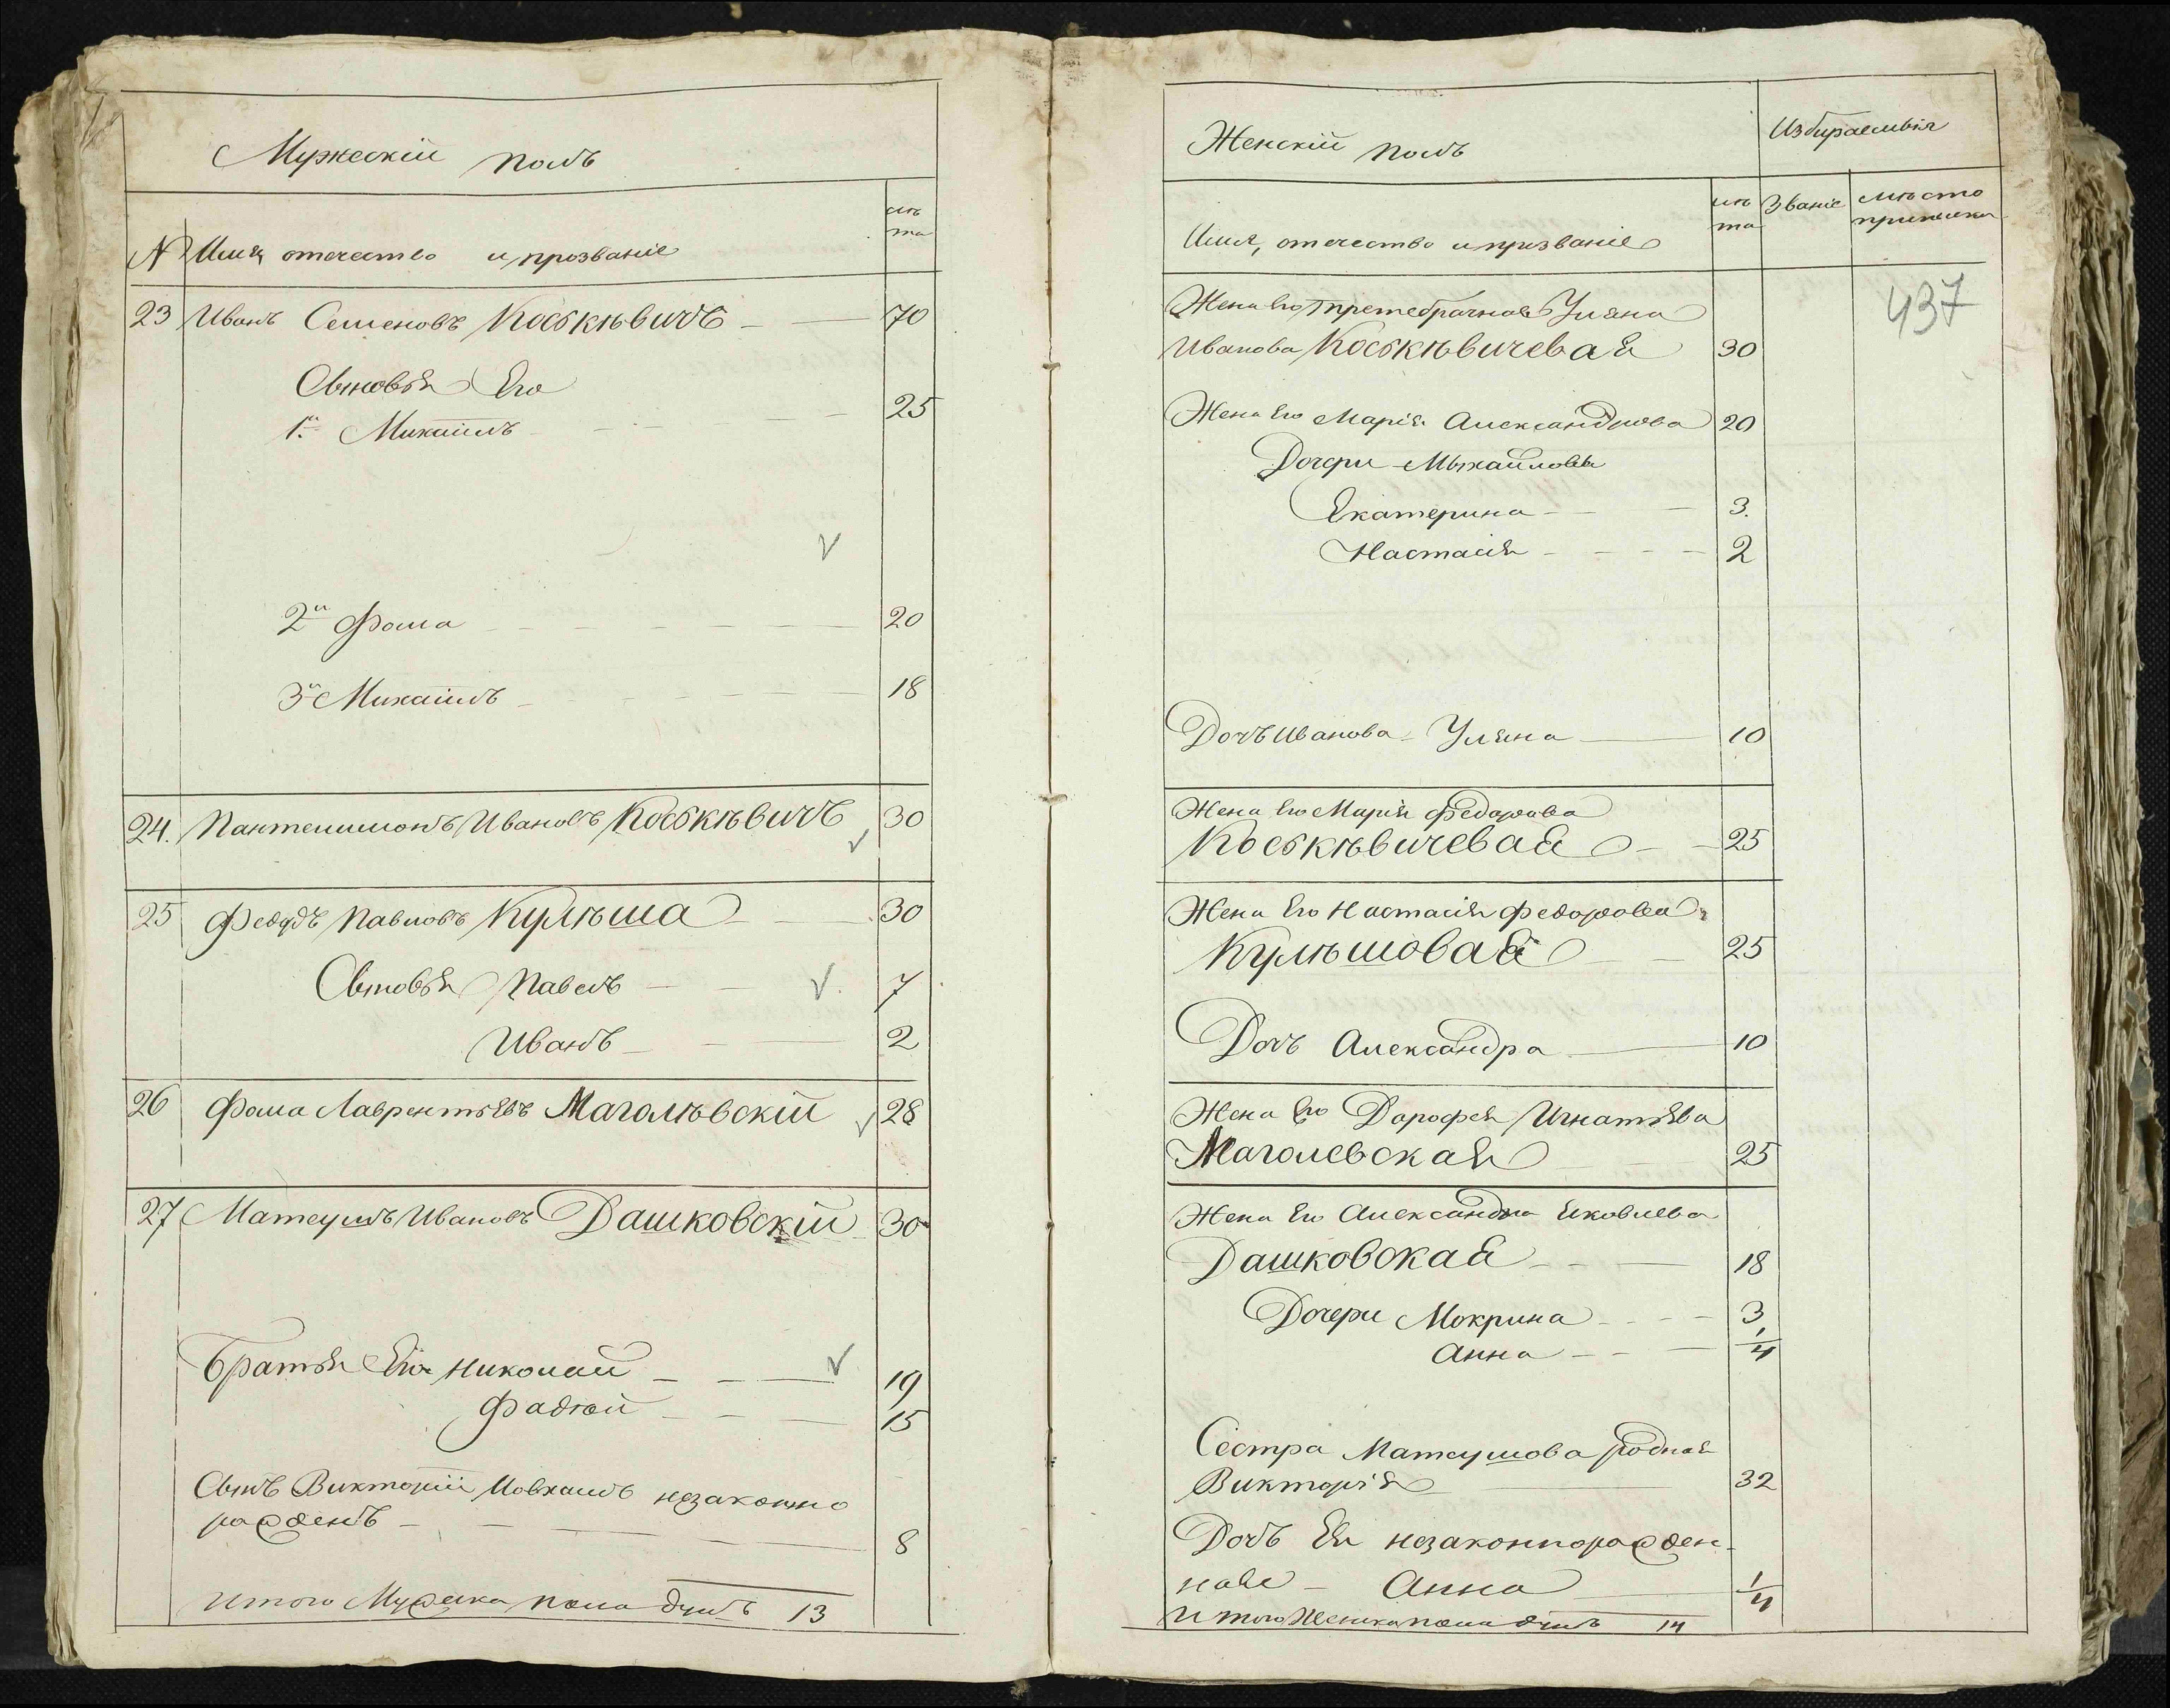 Мужескій полъ
лѣ
та
№ Имя, отечество и прозваніе
23 Иванъ Семеновъ Коськѣвичъ 70
Сыновья Его
1й Михайлъ 25
2й Фома 20
3й Михайлъ 18
24. Пантелимонъ Ивановъ Коськѣвичъ 30
25 Федудъ Павловъ Кулѣша 30
Сыновья Павелъ 7
Иванъ 2
26 Фома Лаврентьевъ Маголѣвскій 28
27 Матеушъ Ивановъ Дашковскій 30
Братья Его Николай 19
Фадѣй 15
Сынъ Викторіи Мовхаилъ незаконно
рожденъ 8
Итого Мужска пола душъ 13
Женскій полъ
Избираемыя
Имя, отечество и прозваніе
лѣ
та
Званіе
мѣсто
приписки
437
Жена Его третебрачная Уляна
Иванова Коськѣвичевая 30
Жена Его Марія Александрова 20
Дочери Мыхайловы
Екатерина 3.
Настасія 2
Дочь Иванова Уляна 10
Жена Его Марія Федорова
Коськѣвичевая 25
Жена Его Настасія Федорова
Кулѣшовая 25
Дочь Александра 10
Жена Его Дорофея Игнатьева
Маголевская 25
Жена Его Александра Яковлева
Дашковская 18
Дочери Мокрина 3
Анна 1/4
Сестра Матеушова родная
Викторія 32
Дочь Ея незаконнорожден-
ная Анна 1/4
Итого Женска пола душъ 14